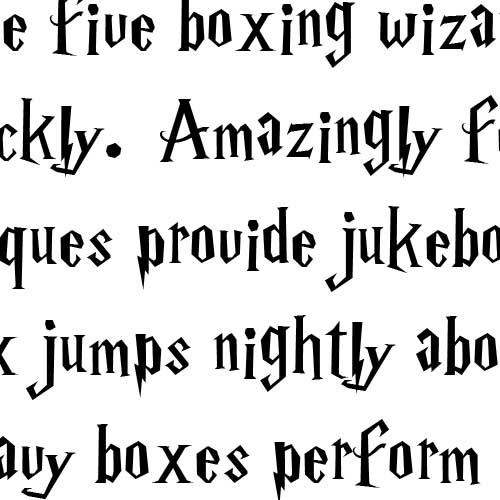 e five boxing wiza
ckly. Amazingly f
ques provide jukebo
x jumps nightly abo
avy boxes perform